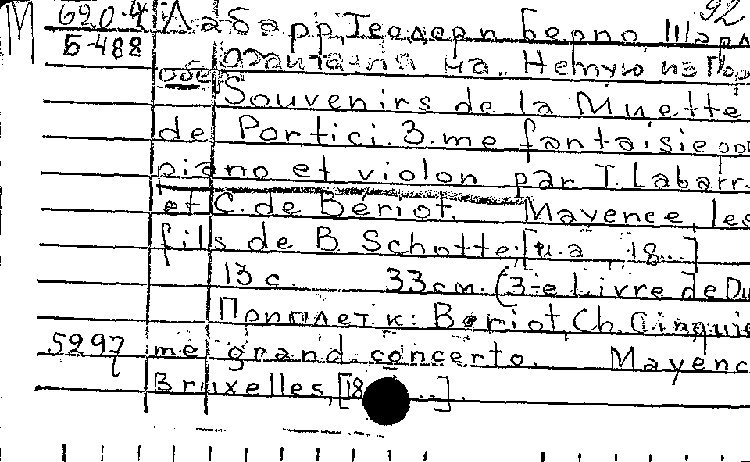 92
М 620-4 Лабарр, Теодор и Берио, Шарл
Б-488
обе Фантазия на "Немую из Пор
Souvenirs de la Muette
de Portici. 3-me fantaisie
piano et violon par T. Labarr
et C. de Beriot. Mayence, les
fils de B. Schotte, [и.а., 18..]
13 с. 33 см. (3-e Livre de Du
Приплет к: Beriot, Ch. Cinquie
5297 me grand concerto. Mayenc
Bruxelles, [18 ..].